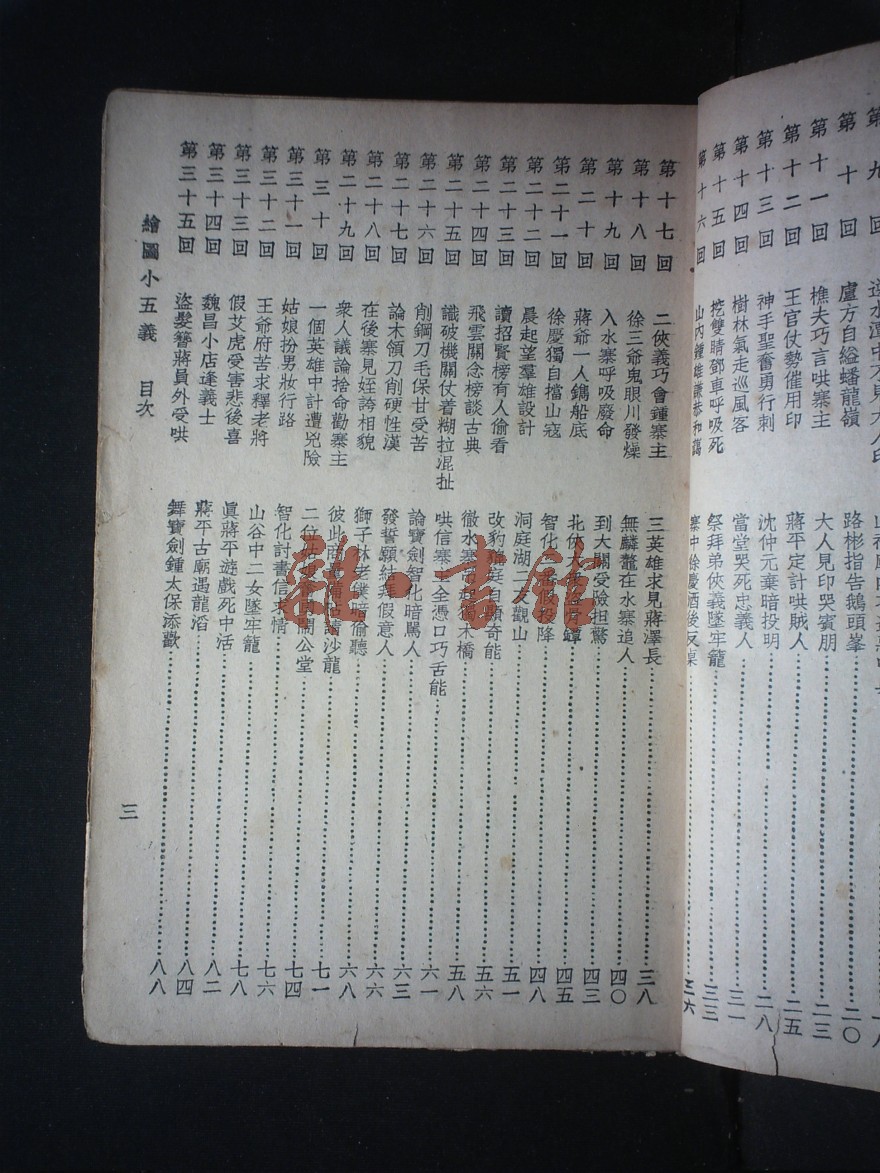 盧方自縊蟠龍嶺 路彬指告鵝頭峯 二〇
第十一回 樵夫巧言哄寨主 大人見印哭賓朋 二三
第十二回 王官仗勢催用印 蔣平定計哄賊人 二五
第十三回 神手聖奮勇行刺 沈仲元棄暗投明 二八
第十四回 樹林氣走巡風客 當堂哭死忠義人 三一
第十五回 挖雙睛鄧車呼吸死 祭拜弟俠義墜牢籠 三三
第十六回 山內鍾雄謙恭和藹 寨中徐慶酒後反桌 三六
第十七回 二俠義巧會鍾寨主 三英雄求見蔣澤長 三八
第十八回 徐三爺鬼眼川發燥 無鱗鼇在水寨追人 四〇
第十九回 入水寨呼吸廢命 到大關受險担驚 四三
第二十回 蔣爺一人鐫船底 北俠 四五
第二十一回 徐慶獨自擋山寇 智化 投降 四八
第二十二回 晨起望羣雄設計 洞庭湖二友觀山 五一
第二十三回 讀招賢榜有人偷看 改豹貔庭自顯奇能 五六
第二十四回 飛雲關念榜談古典 徹水寨 獨木橋 五八
第二十五回 識破機關仗着糊拉混扯 哄信寨主全憑口巧舌能 六一
第二十六回 削鋼刀毛保甘受苦 論寶劍智化暗罵人 六三
第二十七回 論木領刀削硬性漢 發誓願結拜假意人 六六
第二十八回 在後寨見姪誇相貌 獅子林老僕暗偷聽 六八
第二十九回 衆人議論捨命勸寨主 彼此商 請沙龍 七一
第三十回 一個英雄中計遭兇險 二位 鬧公堂 七四
第三十一回 姑娘扮男妝行路 智化計書信求情 七六
第三十二回 王爺府苦求釋老將 山谷中二女墜牢籠 七八
第三十三回 假艾虎受害悲後喜 眞蔣平遊戲死中活 八二
第三十四回 魏昌小店逢義士 蔣平古廟遇龍滔 八四
第三十五回 盜髮簪蔣員外受哄 舞寶劍鍾太保添歡 八八
繪圖小五義 目次 三
雜·書館